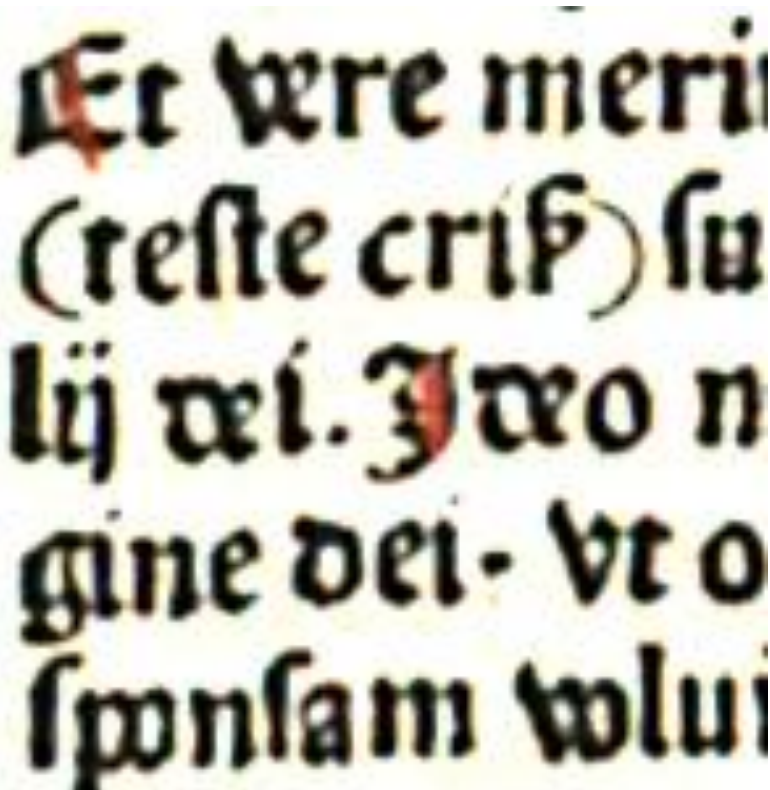 Et vere meri
(teſte criſꝑ) ſu
lij dei. Ideo n
gine dei. Vt o
ſponſam volui